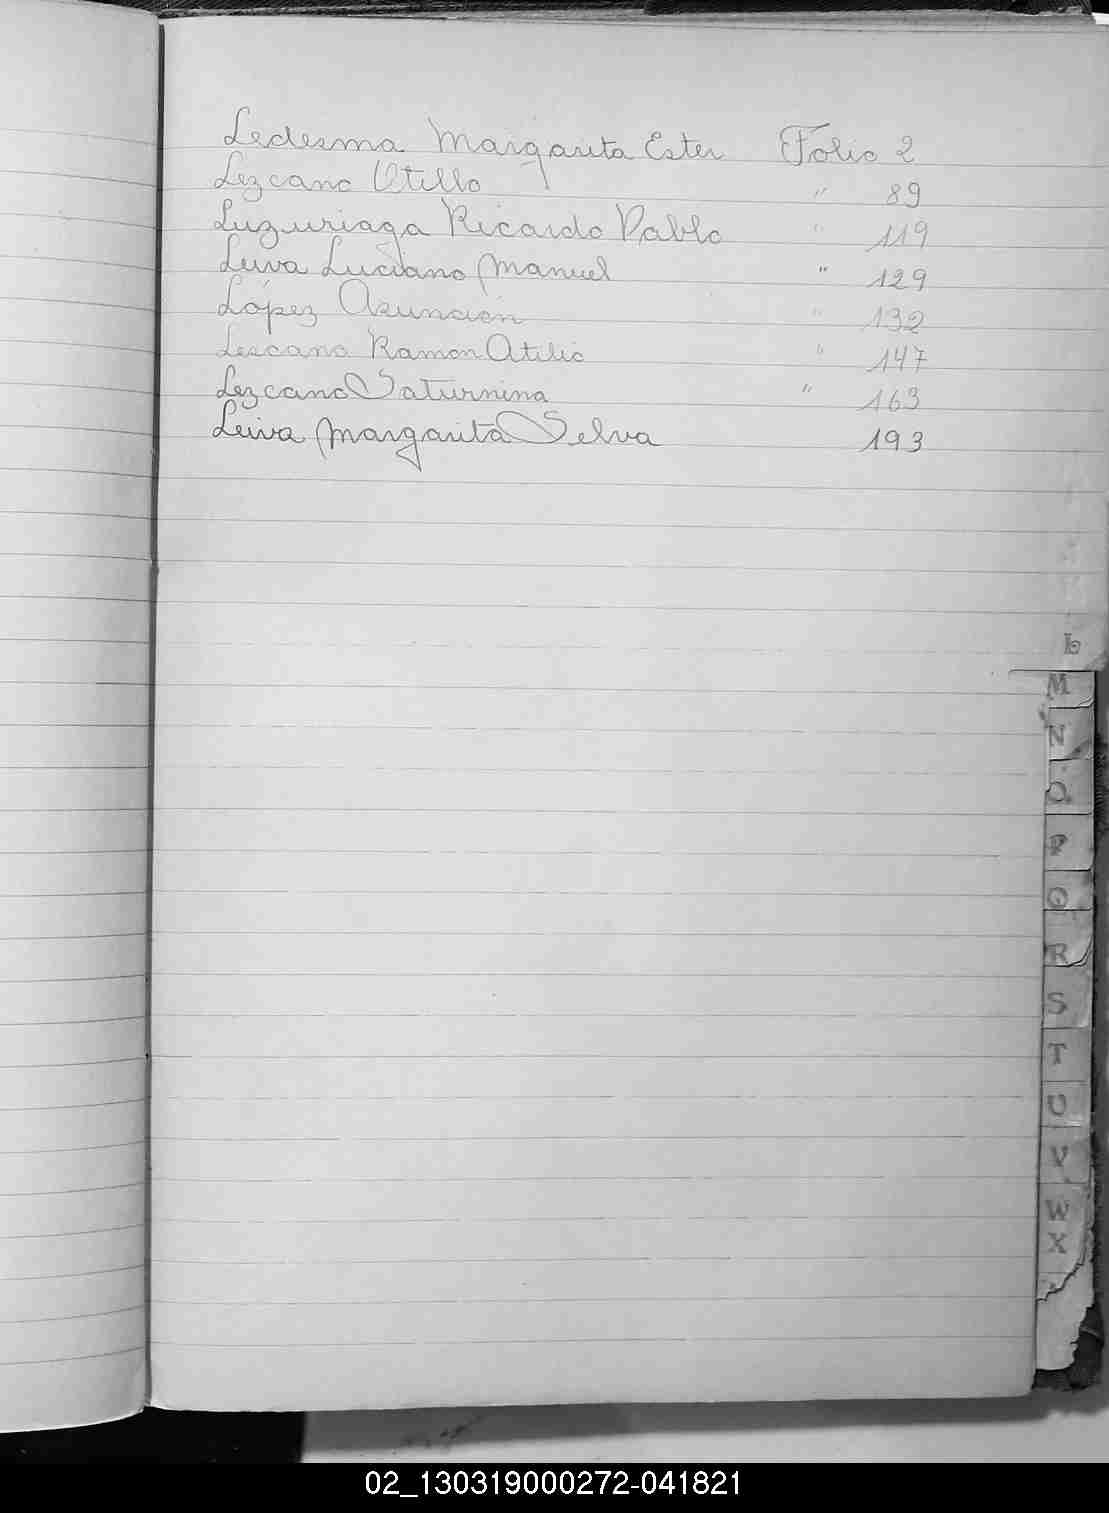 Ledesma Margarita Ester Folio 2
Lezcano Otillo " 89
Luzuriaga Ricardo Pablo " 119
Leiva Luciano Manuel " 129
López Asunción " 132
Lescano Ramon Atilio " 147
Lezcano Saturnina " 163
Leiva Margarita Selva 193
L
M
N
O
P
Q
R
S
T
U
V
W
X
02_130319000272-041821